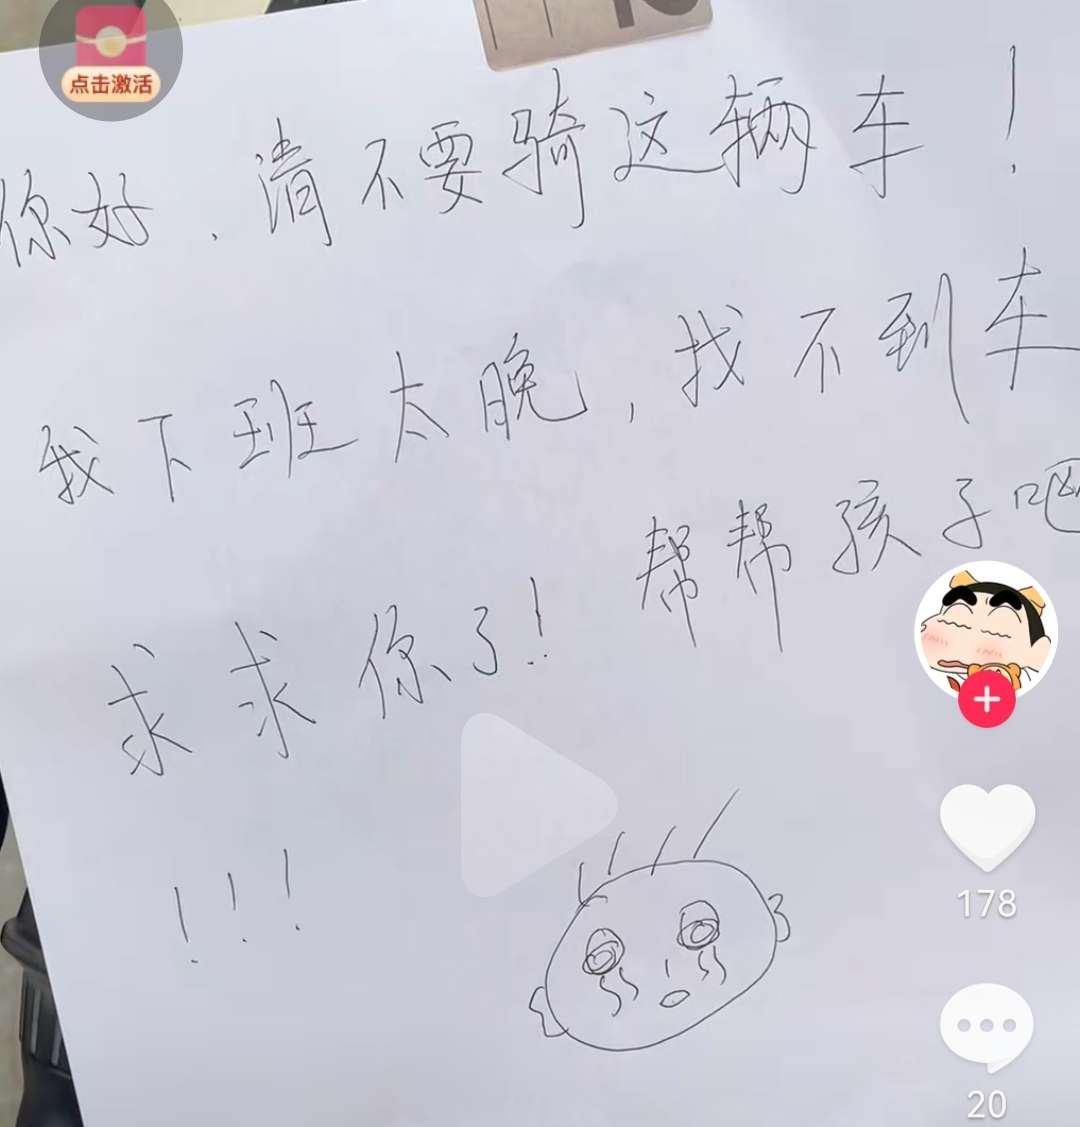 点击激活
你好.请不要骑这辆车!
我下班太晚,找不到车
求求你了!帮帮孩子吧
!!!
178
20